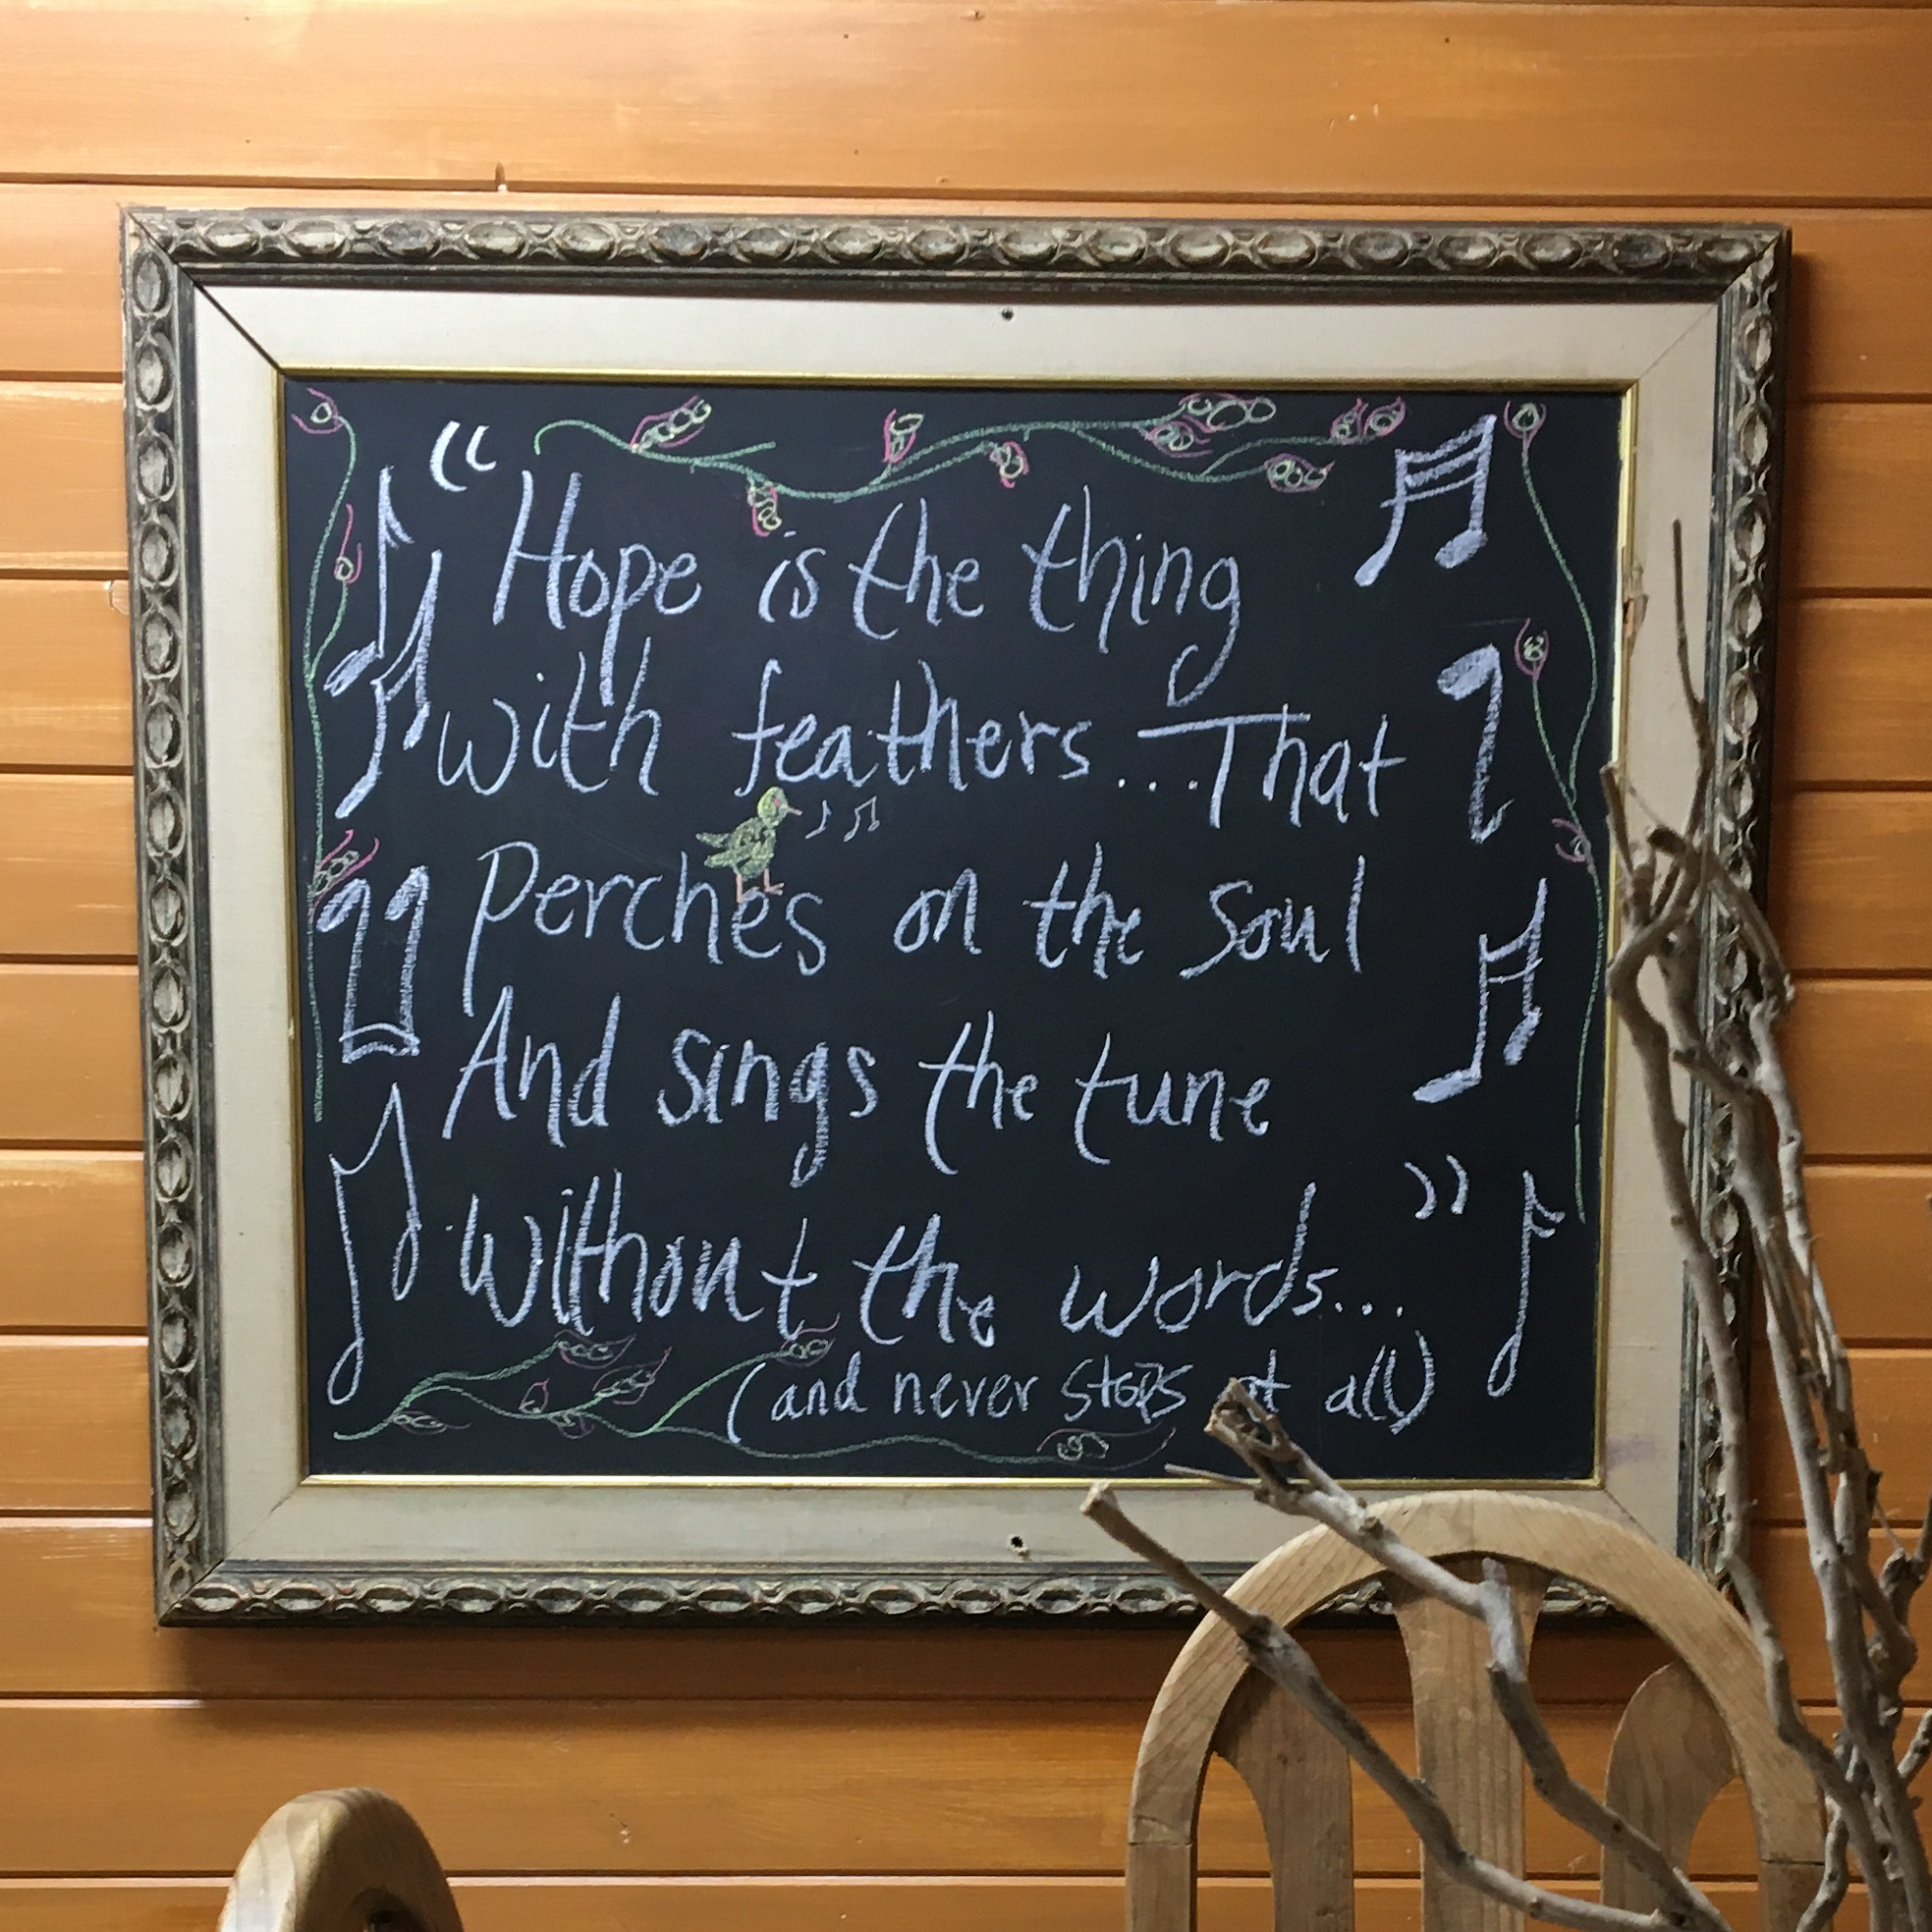 “Hope is the thing
with feathers...That
perches on the soul
And sings the tune
Without the words...”
(and never stops at all)